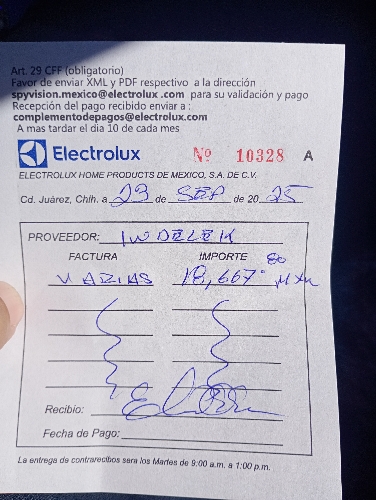 Art. 29 CFF (obligatorio)
Favor de enviar XML y PDF respectivo a la dirección
spyvision.mexico@electrolux .com para su validación y pago
Recepción del pago recibido enviar a :
complementodepagos@electrolux.com
A mas tardar el dia 10 de cada mes
Electrolux Nº 10328 A
ELECTROLUX HOME PRODUCTS DE MEXICO, S.A. DE C.V.
Cd. Juárez, Chih. a 23 de SEP de 20 25
PROVEEDOR: INDELEK
FACTURA IMPORTE
VARIAS 18,667.80 MXN
Recibio:
Fecha de Pago:
La entrega de contrarecibos sera los Martes de 9:00 a.m. a 1:00 p.m.